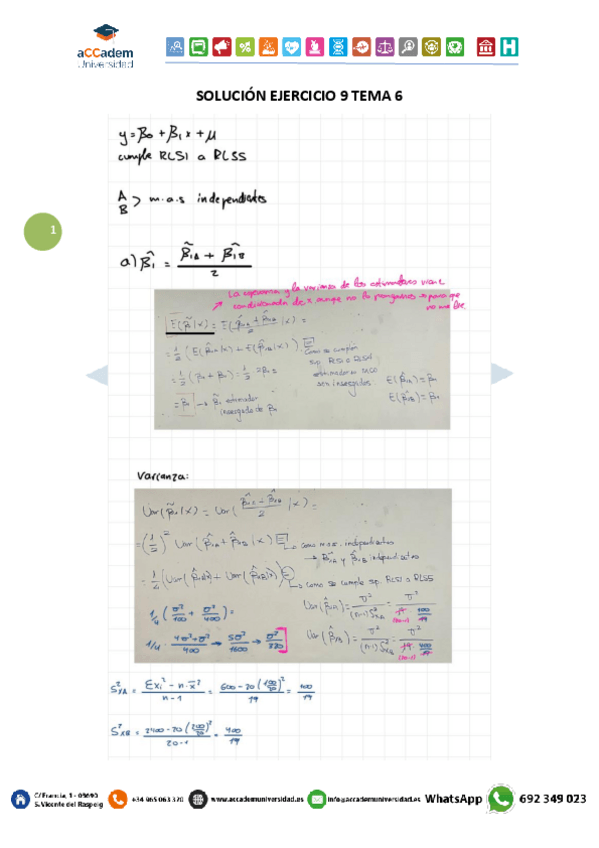 aCCadem
Universidad
SOLUCIÓN EJERCICIO 9 TEMA 6
y = β₀ + β₁x + μ
cumple RLS1 a RLS5
A
B > m.a.s independientes
1
a) β̂₁ = (β̂₁A + β̂₁B) / 2
La esperanza y la varianza de los estimadores viene
condicionada de x aunque no lo pongamos
E(β̃₁|x) = E((β̂₁A + β̂₁B)/2 |x) =
= 1/2 (E(β̂₁A|x) + E(β̂₁B|x))
Como se cumplen
sup. RLS1 a RLS4
estimadores MCO
son insesgados
E(β̂₁A) = β₁
E(β̂₁B) = β₁
= 1/2 (β₁ + β₁) = 1/2 2β₁ =
= β₁ → β̃₁ estimador
insesgado de β₁
Varianza:
Var(β̃₁|x) = Var((β̂₁A + β̂₁B)/2 |x) =
= (1/2)² Var(β̂₁A + β̂₁B |x) = como m.a.s. independientes
→ β̂₁A y β̂₁B independientes
= 1/4 (Var(β̂₁A|x) + Var(β̂₁B|x)) = como se cumple sup. RLS1 a RLS5
1/4 (σ²/100 + σ²/400) =
1/4 · (4σ²+σ²)/400 → 5σ²/1600 → σ²/320
Var(β̂₁A) = σ²/((n-1)S²xA) = σ²/(19 · 100/19)
(20-1)
Var(β̂₁B) = σ²/((n-1)S²xB) = σ²/(19 · 400/19)
(20-1)
S²xA = (Σxi² - n·x̄²)/(n-1) = (600 - 20(100/20)²)/19 = 100/19
S²xB = (2400 - 20(200/20)²)/(20-1) = 400/19
C/Francia, 1 - 03690
S. Vicente del Raspeig
+34 965 063 320
www.accademuniversidad.es
info@accademuniversidad.es
WhatsApp
692 349 023